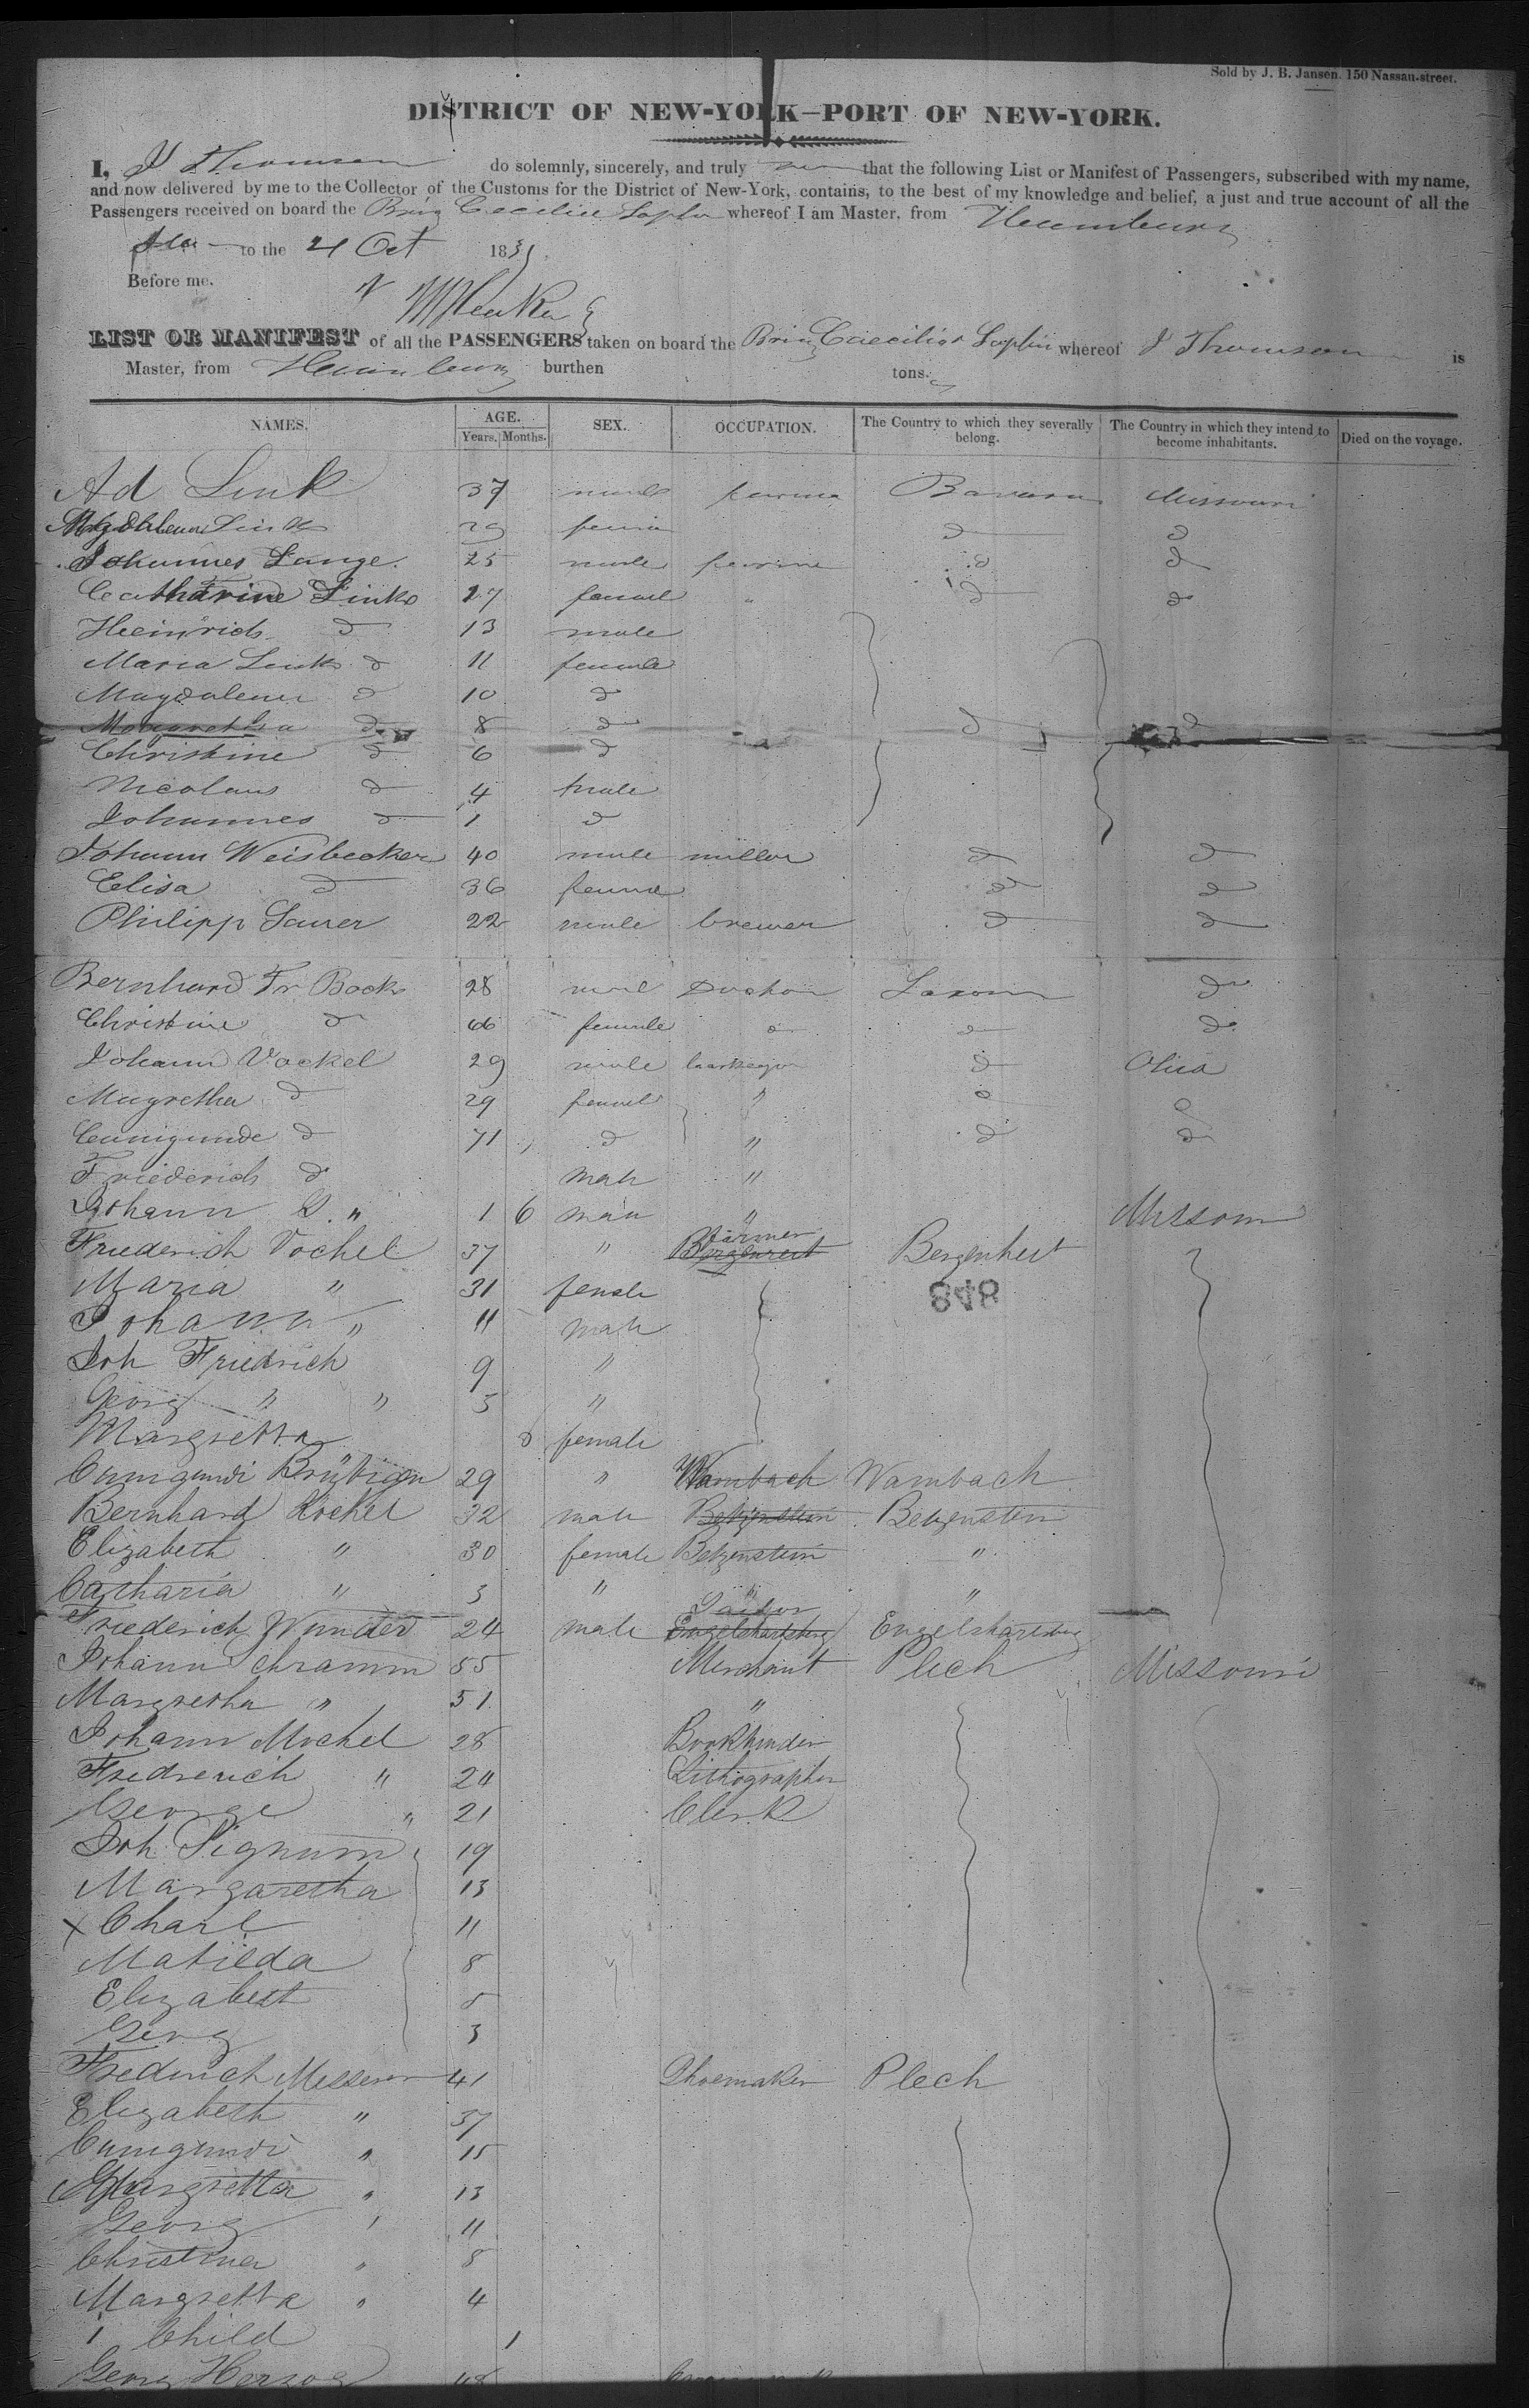 Sold by J. B. Jansen. 150 Nassau-street.
DISTRICT OF NEW-YORK—PORT OF NEW-YORK.
I, J Thomsen do solemnly, sincerely, and truly that the following List or Manifest of Passengers, subscribed with my name,
and now delivered by me to the Collector of the Customs for the District of New-York, contains, to the best of my knowledge and belief, a just and true account of all the
Passengers received on board the Brig Caecilia Sophie whereof I am Master, from Hamburg
to the 21 Oct 183
Before me.
LIST OR MANIFEST of all the PASSENGERS taken on board the Brig Caecilia Sophie whereof J Thomsen is
Master, from Hamburg burthen tons.
NAMES. AGE. SEX. OCCUPATION. The Country to which they severally belong. The Country in which they intend to become inhabitants. Died on the voyage.
Years. Months.
Ad Link 37 male Bavaria Missouri
Magdalena Link 29 d d
Johannes Lange. 25 male d d
Catharine Link 27 female " d d
Heinrich d 13 male
Maria Link d 11 female
Magdalena d 10 d
Margaretha d 8 d d d
Christine d 6 d
Nicolaus d 4 male
Johannes d 1 d
Johann Weisbecker 40 male miller d d
Elisa d 36 d d
Philipp Sauer 22 male brewer d d
Bernhard Fr Bock 28 d
Christine d 66 female d d
Johann Vockel 29 male d Ohio
Magretha d 29 " d d
Cunigunde d 71 d " d d
Friederich d male "
Johann G. " 1 6 male " Missouri
Friederich Vochel 37 " Farmer Bergenreut Bergenheut
Maria " 31 female 848
Johann " 11 male
Joh Friedrich 9 "
Georg " " 5 "
Margretta 8 female
Cunigundi 29 " Wambach Wambach
Bernhard Kochel 32 male Betzenstein Betzenstein
Elizabeth " 30 female Betzenstein "
Catharia " 3 " " "
Friederich Wunder 24 male Tailor Engelshartsberg Engelshartsberg
Johann Schramm 55 Merchant Plech Missouri
Margretha " 51 "
Johann Michel 28 Bookbinder
Fredrerich " 24 Lithographer
George " 21 Clerk
Joh Pignum 19
Margaretha 13
x Charl 11
Matilda 8
Elizabeth 5
Georg 3
Frederich Messerer 41 Shoemaker Plech
Elizabeth " 37
Cunigundi " 15
Margretta " 13
Georg " 11
Christina " 8
Margretta " 4
1 Child 1
Georg Herzog 48